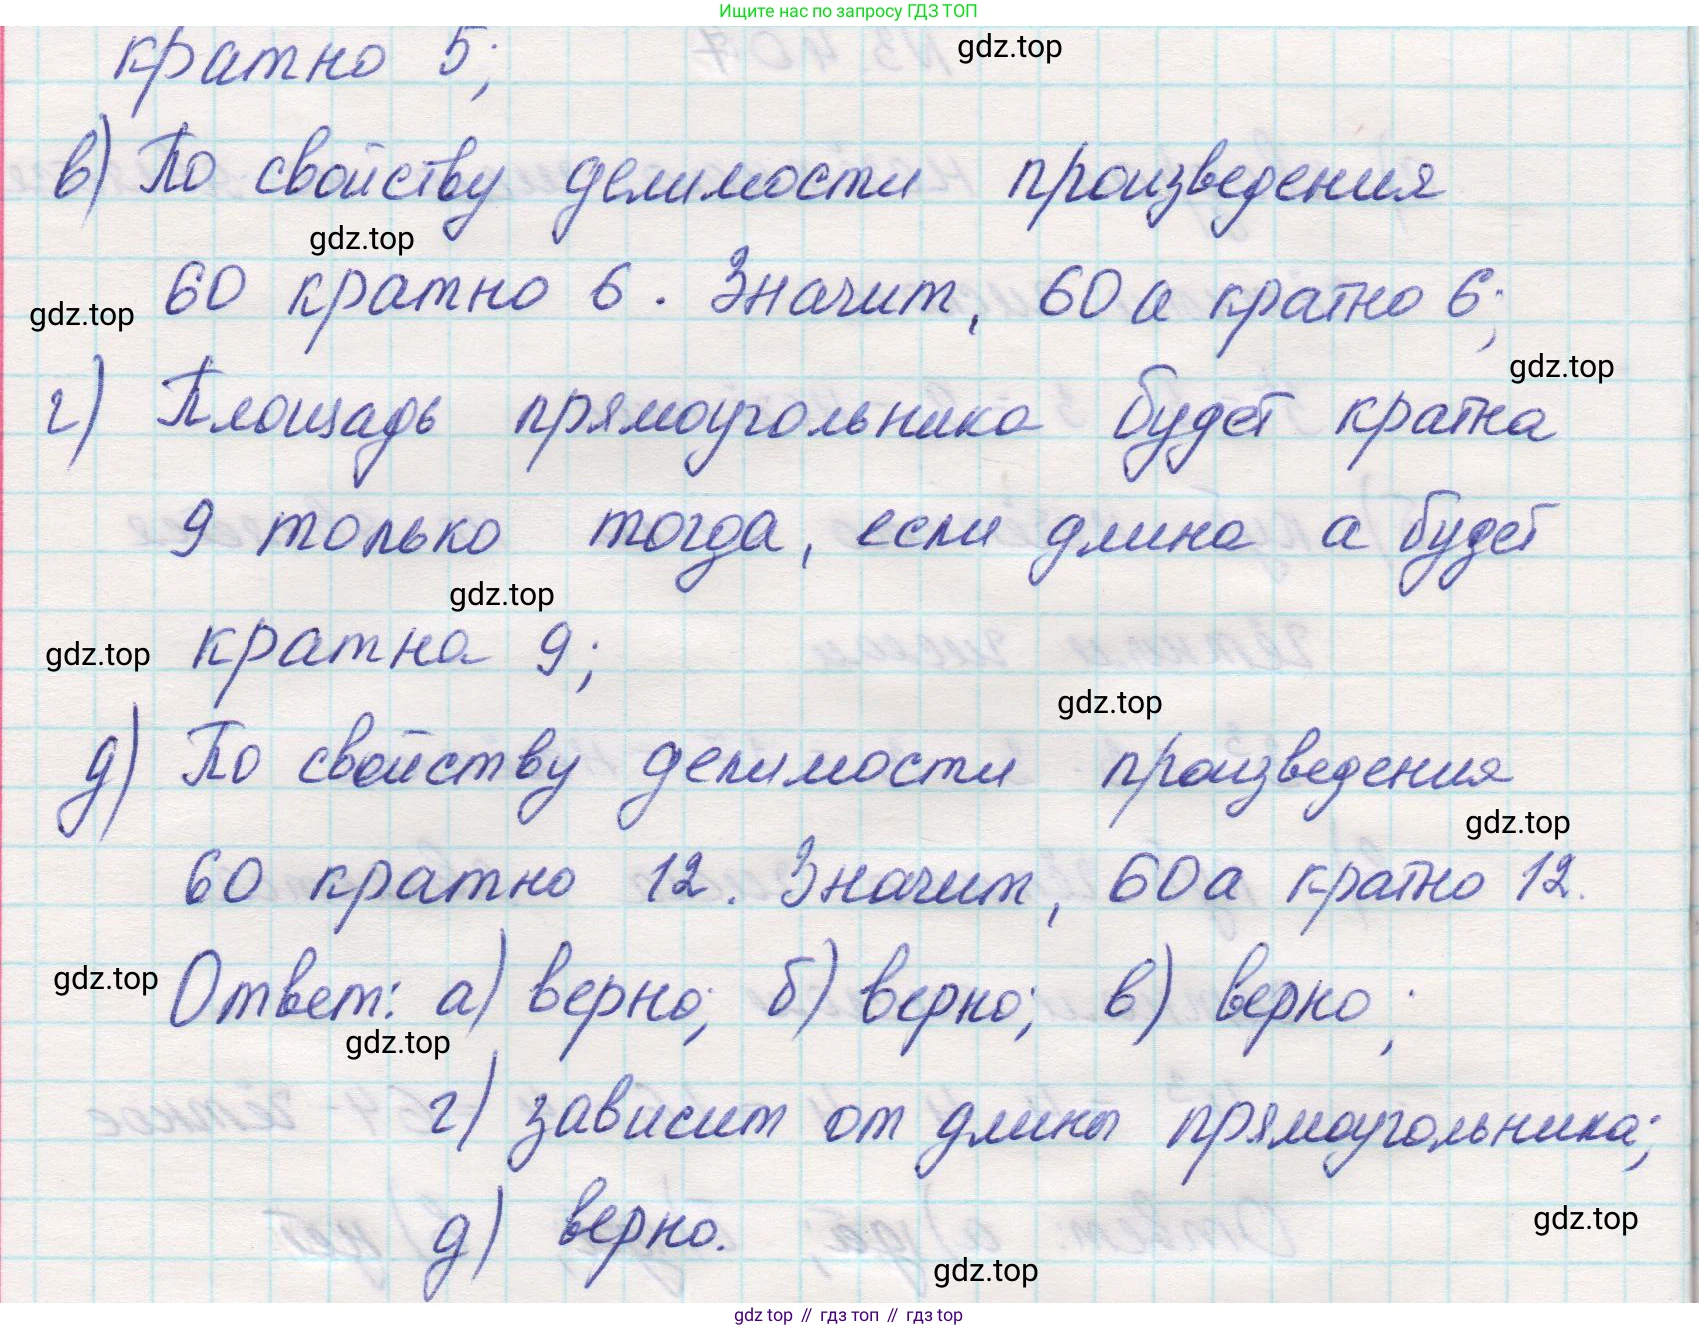 Ищите нас по запросу ГДЗ ТОП
кратно 5;
gdz.top
в) По свойству делимости произведения
gdz.top
60 кратно 6. Значит, 60а кратно 6;
gdz.top
gdz.top
г) Площадь прямоугольника будет кратна
9 только тогда, если длина а будет
gdz.top
кратна 9;
gdz.top
gdz.top
д) По свойству делимости произведения
gdz.top
60 кратно 12. Значит, 60а кратно 12.
gdz.top
Ответ: а) верно; б) верно; в) верно;
gdz.top
г) зависит от длины прямоугольника;
д) верно.
gdz.top
gdz.top
gdz top // гдз топ // гдз top